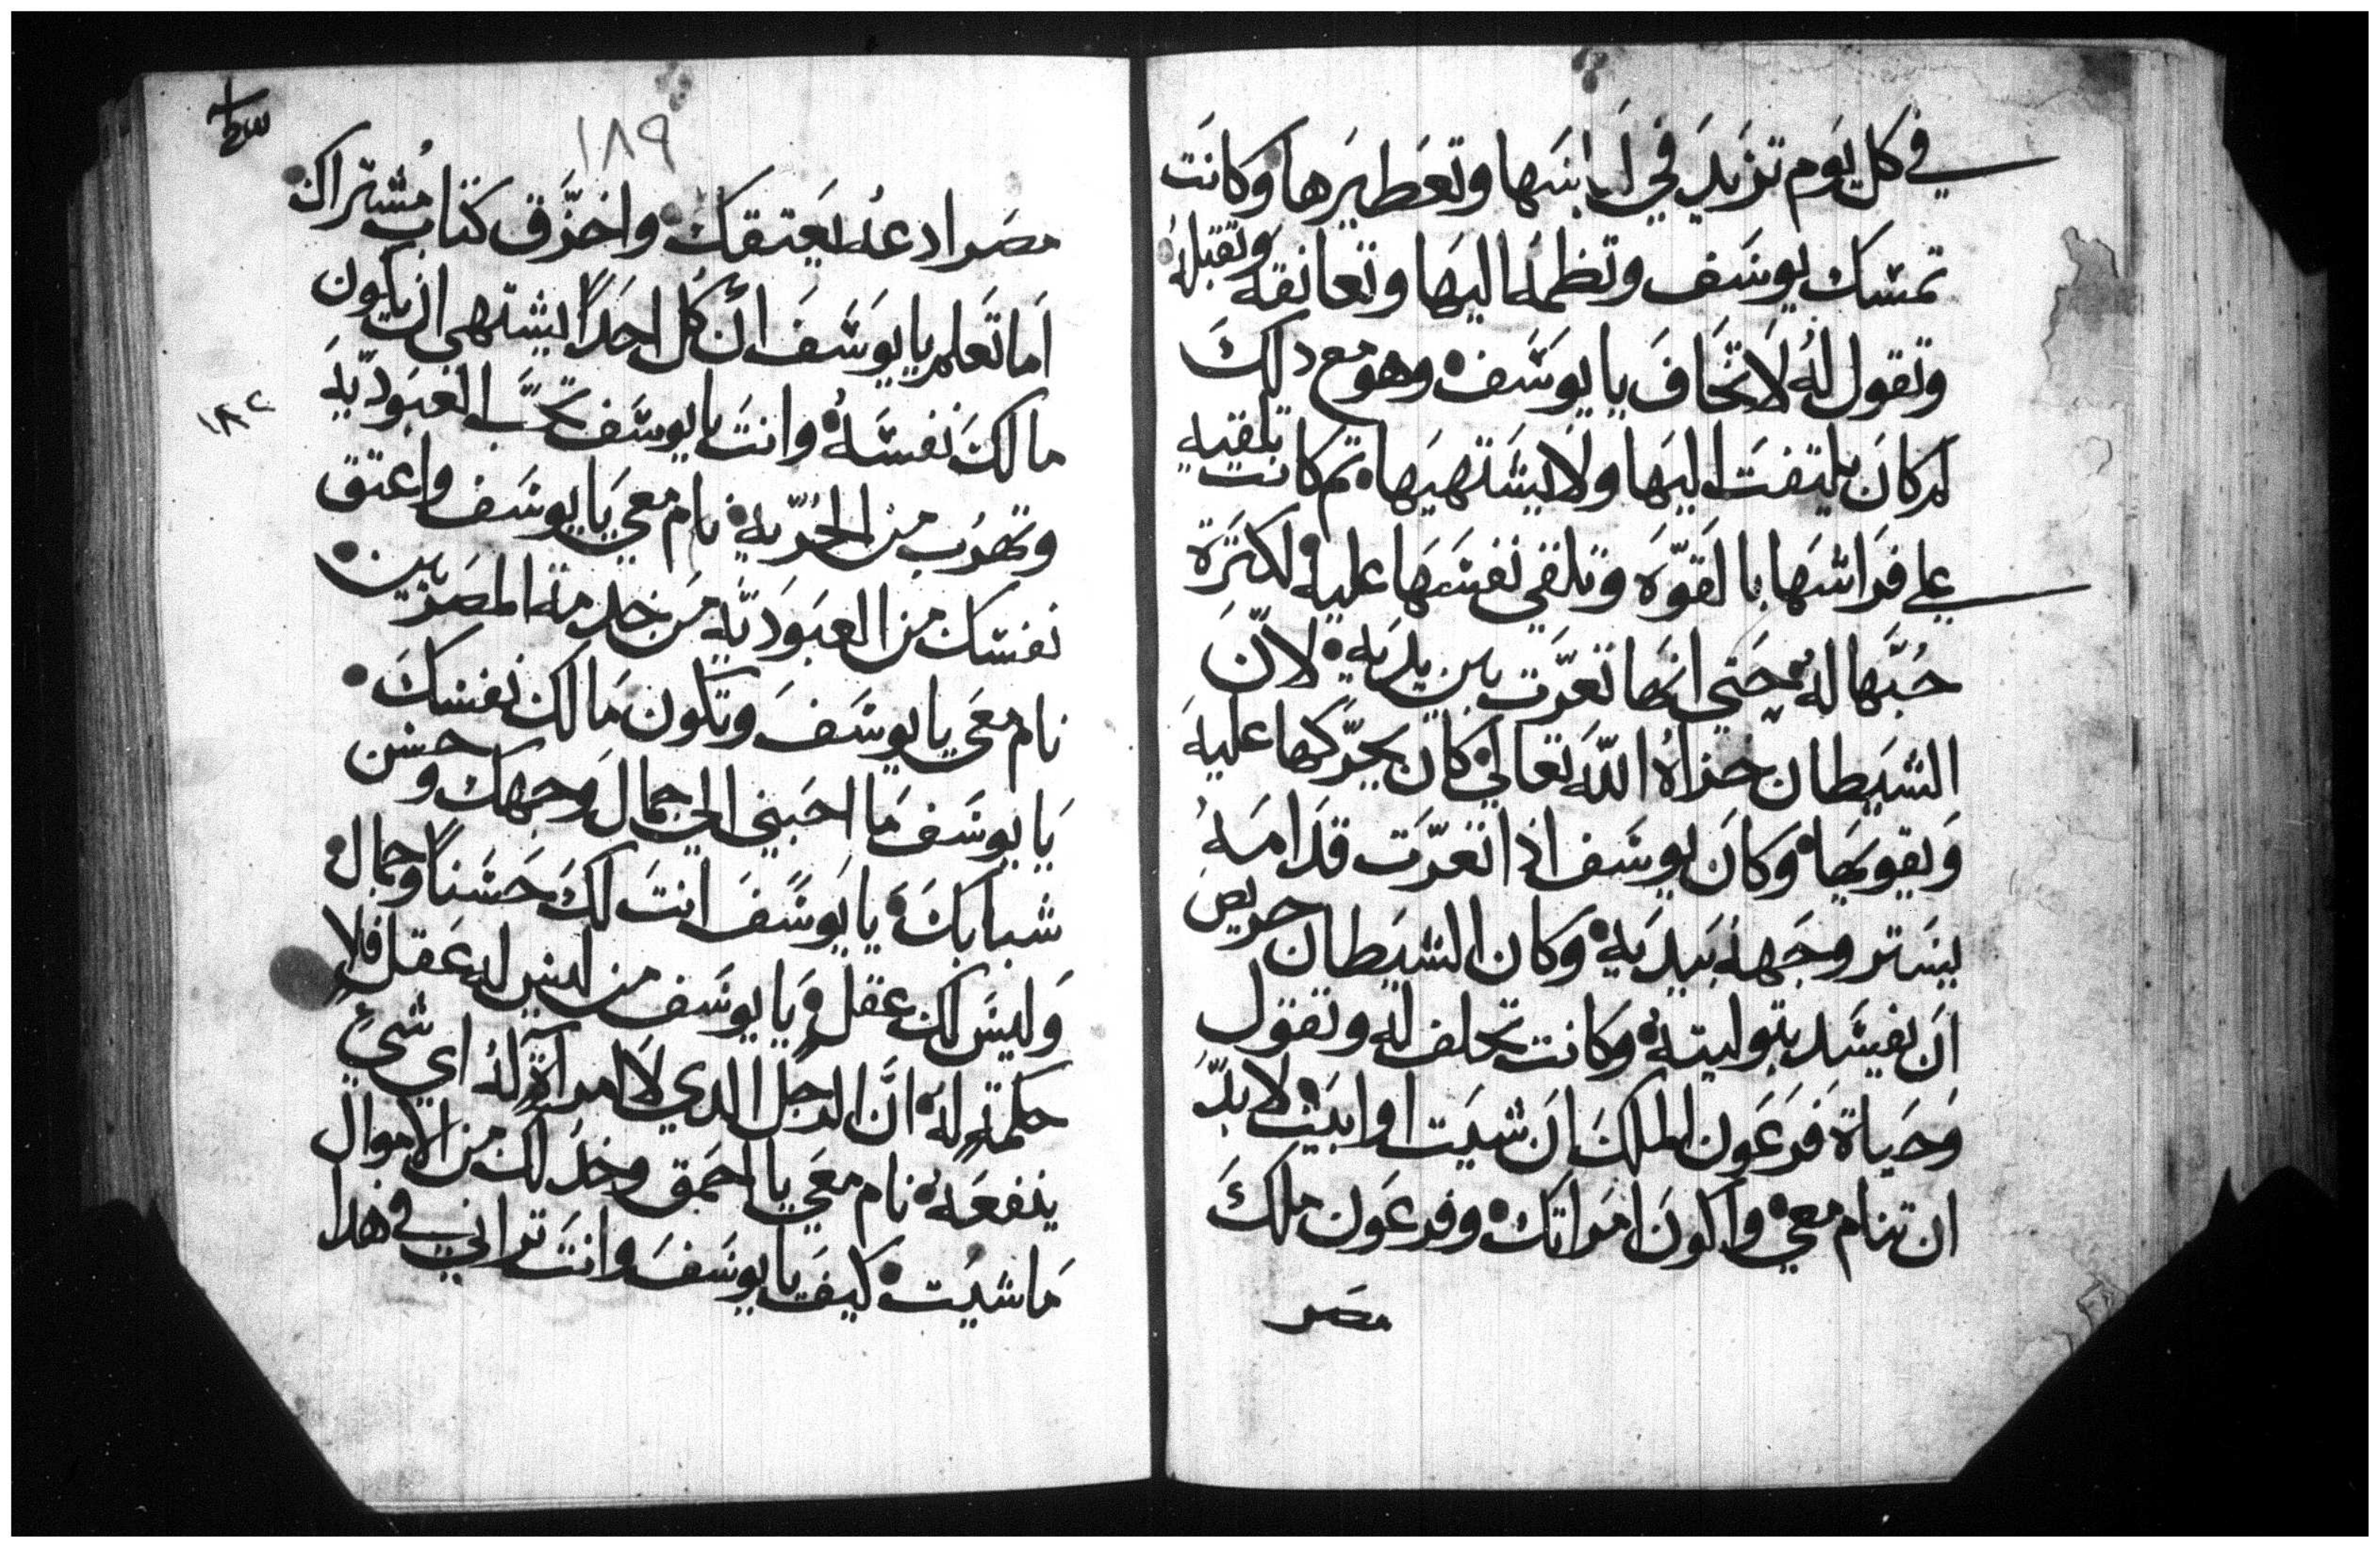 في كل يوم تزيد في لباسها وتعطيرها وكانت
تمسك يوسف وتظمه اليها وتعانقه وتقبله
وتقول له لا تخاف يا يوسف وهو مع دلك
لم كان يلتفت اليها ولا يشتهيها ثم كانت تلقيه
علي فراشها بالقوه وتلقي نفسها عليه لكترة
حبها له حتي انها تعرت بين يديه لان
الشيطان خزاه الله تعالي كان يحركها عليه
ويقويها وكان يوسف ادا تعرت قدامه
يستر وجهه بيديه وكان الشيطان حريص
ان يفسد بتوليته وكانت تحلف له وتقول
وحياة فرعون الملك ان شيت او ابيت لا بد
ان تنام معي واكون امراتك وفرعون ملك
مصر
١٨٩
مصر ادعه يعتقك واخزق كتاب مشتراك
اما تعلم يا يوسف ان كل احدا يشتهي ان يكون
مالك نفسه وانت يا يوسف تحب العبوديه
١٨٢
وتهرب من الحريه نام معي يا يوسف واعتق
نفسك من العبوديه من خدمة المصريين
نام معي يا يوسف وتكون مالك نفسك
يا يوسف ما احبني الي جمال وجهك وحسن
شبابك يا يوسف انت لك حسنا وجمال
وليس لك عقل يا يوسف من ليس له عقل فلا
حكمة له ان الرجل الدي لا امراة له اي شي
ينفعه نام معي يا احمق وخد لك من الاموال
ما شيت كيف يا يوسف وانت تراني في هدا